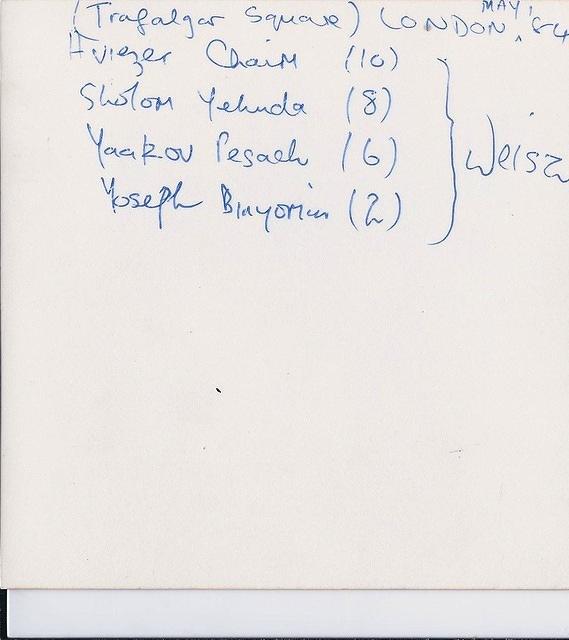 (Trafalgar Square) LONDON, MAY '84
Aviezer Chaim (10)
Sholom Yehuda (8)
Yaakov Pesach (6)
Yoseph Binyomin (2)
} Weisz